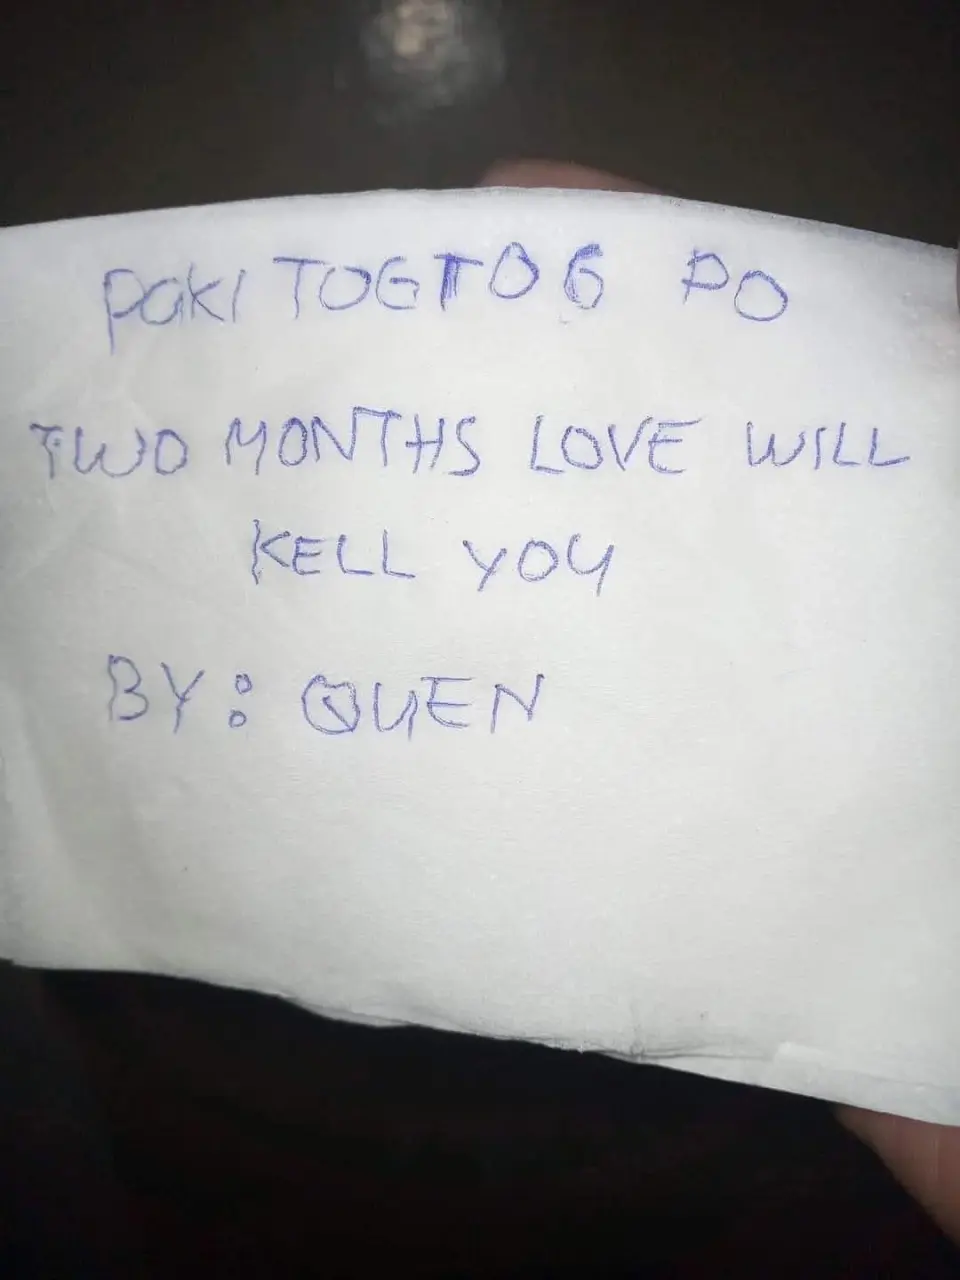 PAKI TOGTOG PO
TWO MONTHS LOVE WILL
KELL YOU
BY: QUEN